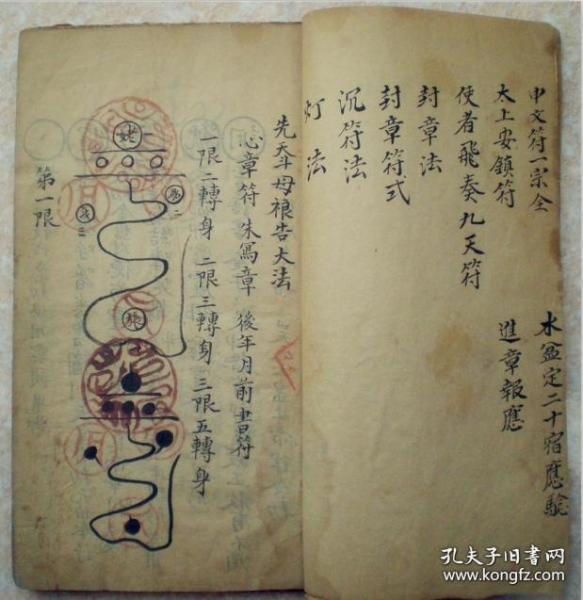 申文符一宗全
太上安鎮符
使者飛奏九天符
封章法
封章符式
沉符法
灯法
水盆定二十宿應驗
進章報應
先天斗母禳告大法
心章符 朱寫章 後年月前書符
一限二轉身 二限三轉身 三限五轉身
第一限
孔夫子旧书网
www.kongfz.com